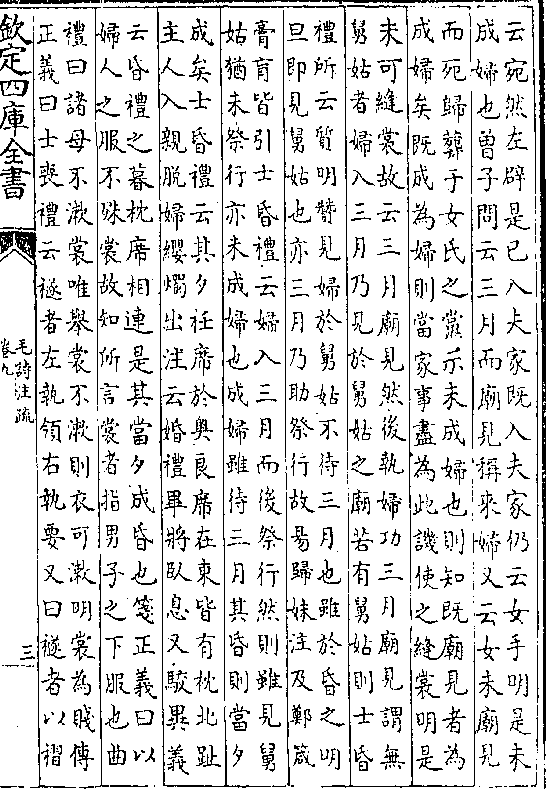 云宛然左辟是已入夫家既入夫家仍云女手明是未
成婦也曾子問云三月而廟見稱來婦又云女未廟見
而死歸葬于女氏之黨示未成婦也則知既廟見者為
成婦矣既成為婦則當家事盡為此譏使之縫裳明是
未可縫裳故云三月廟見然後執婦功三月廟見謂無
舅姑者婦入三月乃見於舅姑之廟若有舅姑則士昏
禮所云質明贊見婦於舅姑不待三月也雖於昏之明
旦即見舅姑也亦三月乃助祭行故易歸妹注及鄭箴
膏肓皆引士昏禮云婦入三月而後祭行然則雖見舅
姑猶未祭行亦未成婦也成婦雖待三月其昏則當夕
成矣士昏禮云其夕衽席於奥良席在東皆有枕北趾
主人入親脱婦纓燭出注云婚禮畢將臥息又駮異義
云昏禮之暮枕席相連是其當夕成昏也箋正義曰以
婦人之服不殊裳故知所言裳者指男子之下服也曲
禮曰諸母不漱裳唯舉裳不漱則衣可漱明裳為賤傳
正義曰士喪禮云襚者左執領右執要又曰襚者以褶
欽定四庫全書
毛詩注疏
卷九
三